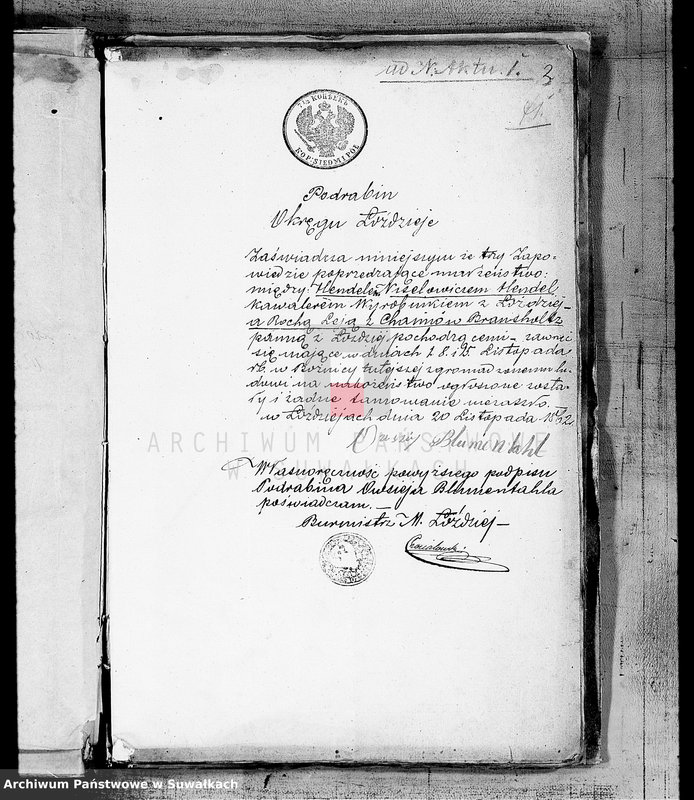 ad N. Aktu. 1. 3
7½ КОПѢЕКЪ
KOP. SIEDM I PÓŁ
Podrabin
Okręgu Łoździeje
Zaświadcza niniejszym że trzy Zapo-
wiedzie poprzedzające małżeństwo:
między: Hendelem Wigelowiczem Hendel
kawalerem Wyrobnikiem z Łoździej-
a Rochą Leją z Chaimów Bransholtz
panną z Łoździej pochodzącemi- zawrzeć
się mające w dniach 1 8. i 15. Listopada
rb. w Bożnicy tutejszej zgromadzonemu lu-
dowi na nabożeństwo ogłoszone zosta-
ły i żadne tamowanie niezaszło. —
w Łoździejach dnia 20 Listopada 1862
Owsiej Blumentahl
Własnoręczność powyższego podpisu
Podrabina Owsieja Blumentahla
poświadczam. —
Burmistrz M. Łoździej —
ARCHIWUM PAŃSTWOWE
W SUWAŁKACH
Archiwum Państwowe w Suwałkach